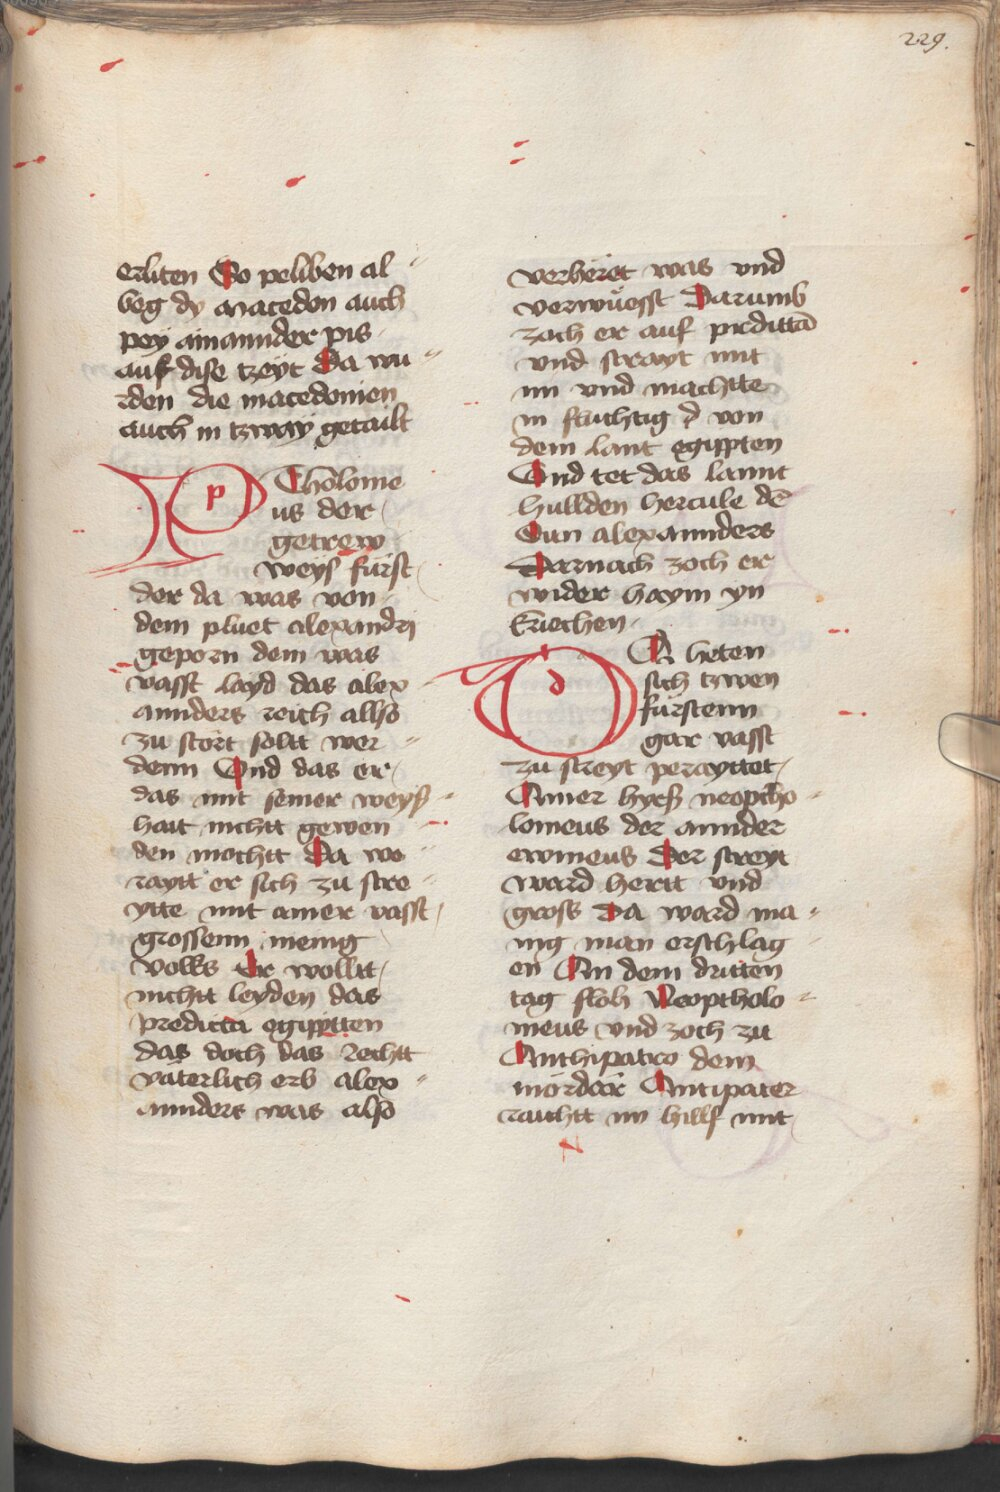 229.
erliten So peliben al
beg dy macedon auch
pey ainannder pis
auf dise tzeyt Da wu
rden die macedonien
auch in tzway getailt
Ptholome
us der
getrew
weys fürst
der da was von
dem pluet alexandrj
geporn dem was
vasst layd das alex
annders reich allso
zu stört soltt wer
denn Vnd das er
das mit seiner weyß
hait nichtt gewen
den mochtt Da we
raytt er sich zu stre
ytte mit ainer vasst
grossenn menig
volks Er wolltt
nichtt leyden das
predicta egipptten
das doch das rechtt
väterlich erb alex
annders was also
verhéret was vnd
verwüesst Darumb
zoch er auf pirdittā
vnd strayt mit
im vnd machtte
in fluchtig d von
dem lant egippten
Vnd tet das lannt
hullden hercule dē
Sun alexannders
Darnach zoch er
wider haym yn
kriechen
DA heten
sich tzwen
fürstenn
gar vasst
zu streyt perayttet
Ainer hyeß neoptho
lomeus der annder
ewmeus Der streyt
ward hertt vnd
gross Da ward ma
nig man erschlag
en An dem dritten
tag floh Neoptholo
meus vnd zoch zu
Anthipatro dem
mörder Antipater
raichtt im hillf mit